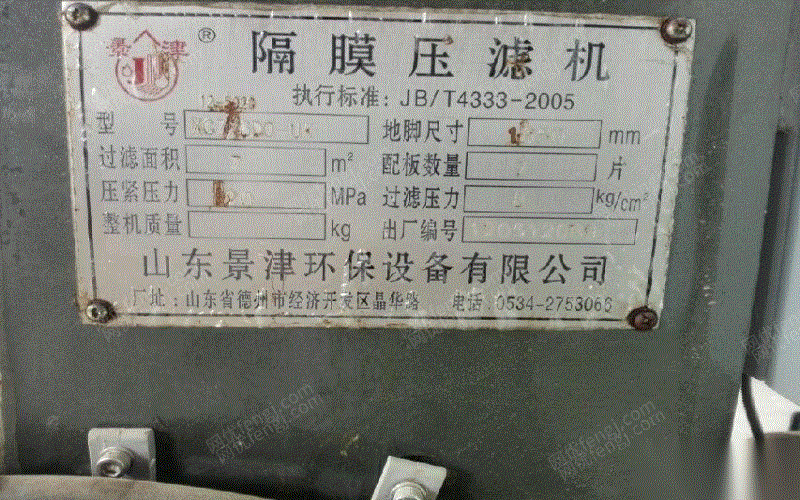 景津 ® 隔膜压滤机
执行标准: JB/T4333-2005
型号 地脚尺寸 mm
过滤面积 m² 配板数量 片
压紧压力 MPa 过滤压力 kg/cm²
整机质量 kg 出厂编号
山东景津环保设备有限公司
厂址:山东省德州市经济开发区晶华路 电话:0534-2753066